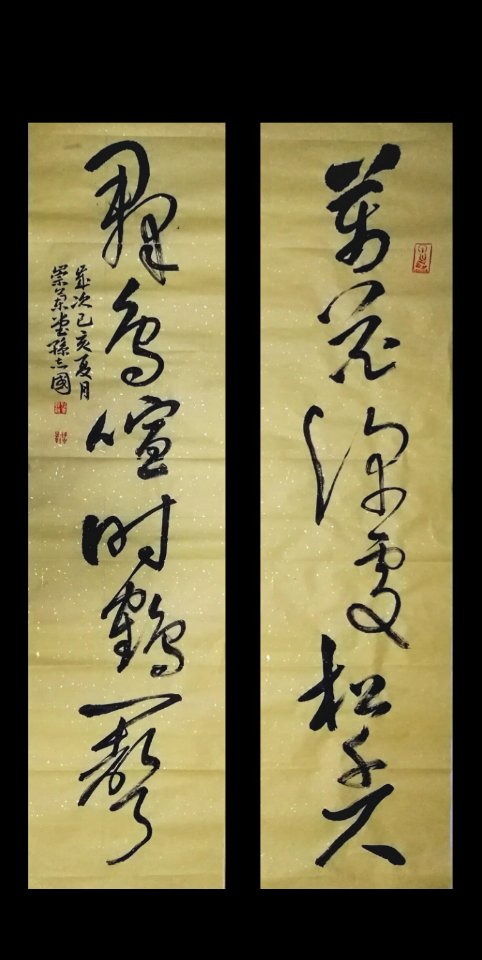 萬花深處松千尺
群鳥喧时鶴一聲
歲次己亥夏月
崇蘭堂孫志國